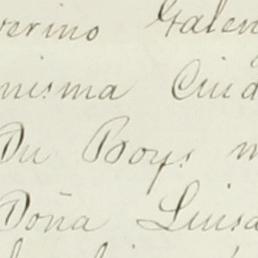 verino Galen
misma Ciud
Du Boys m
Doña Luisa